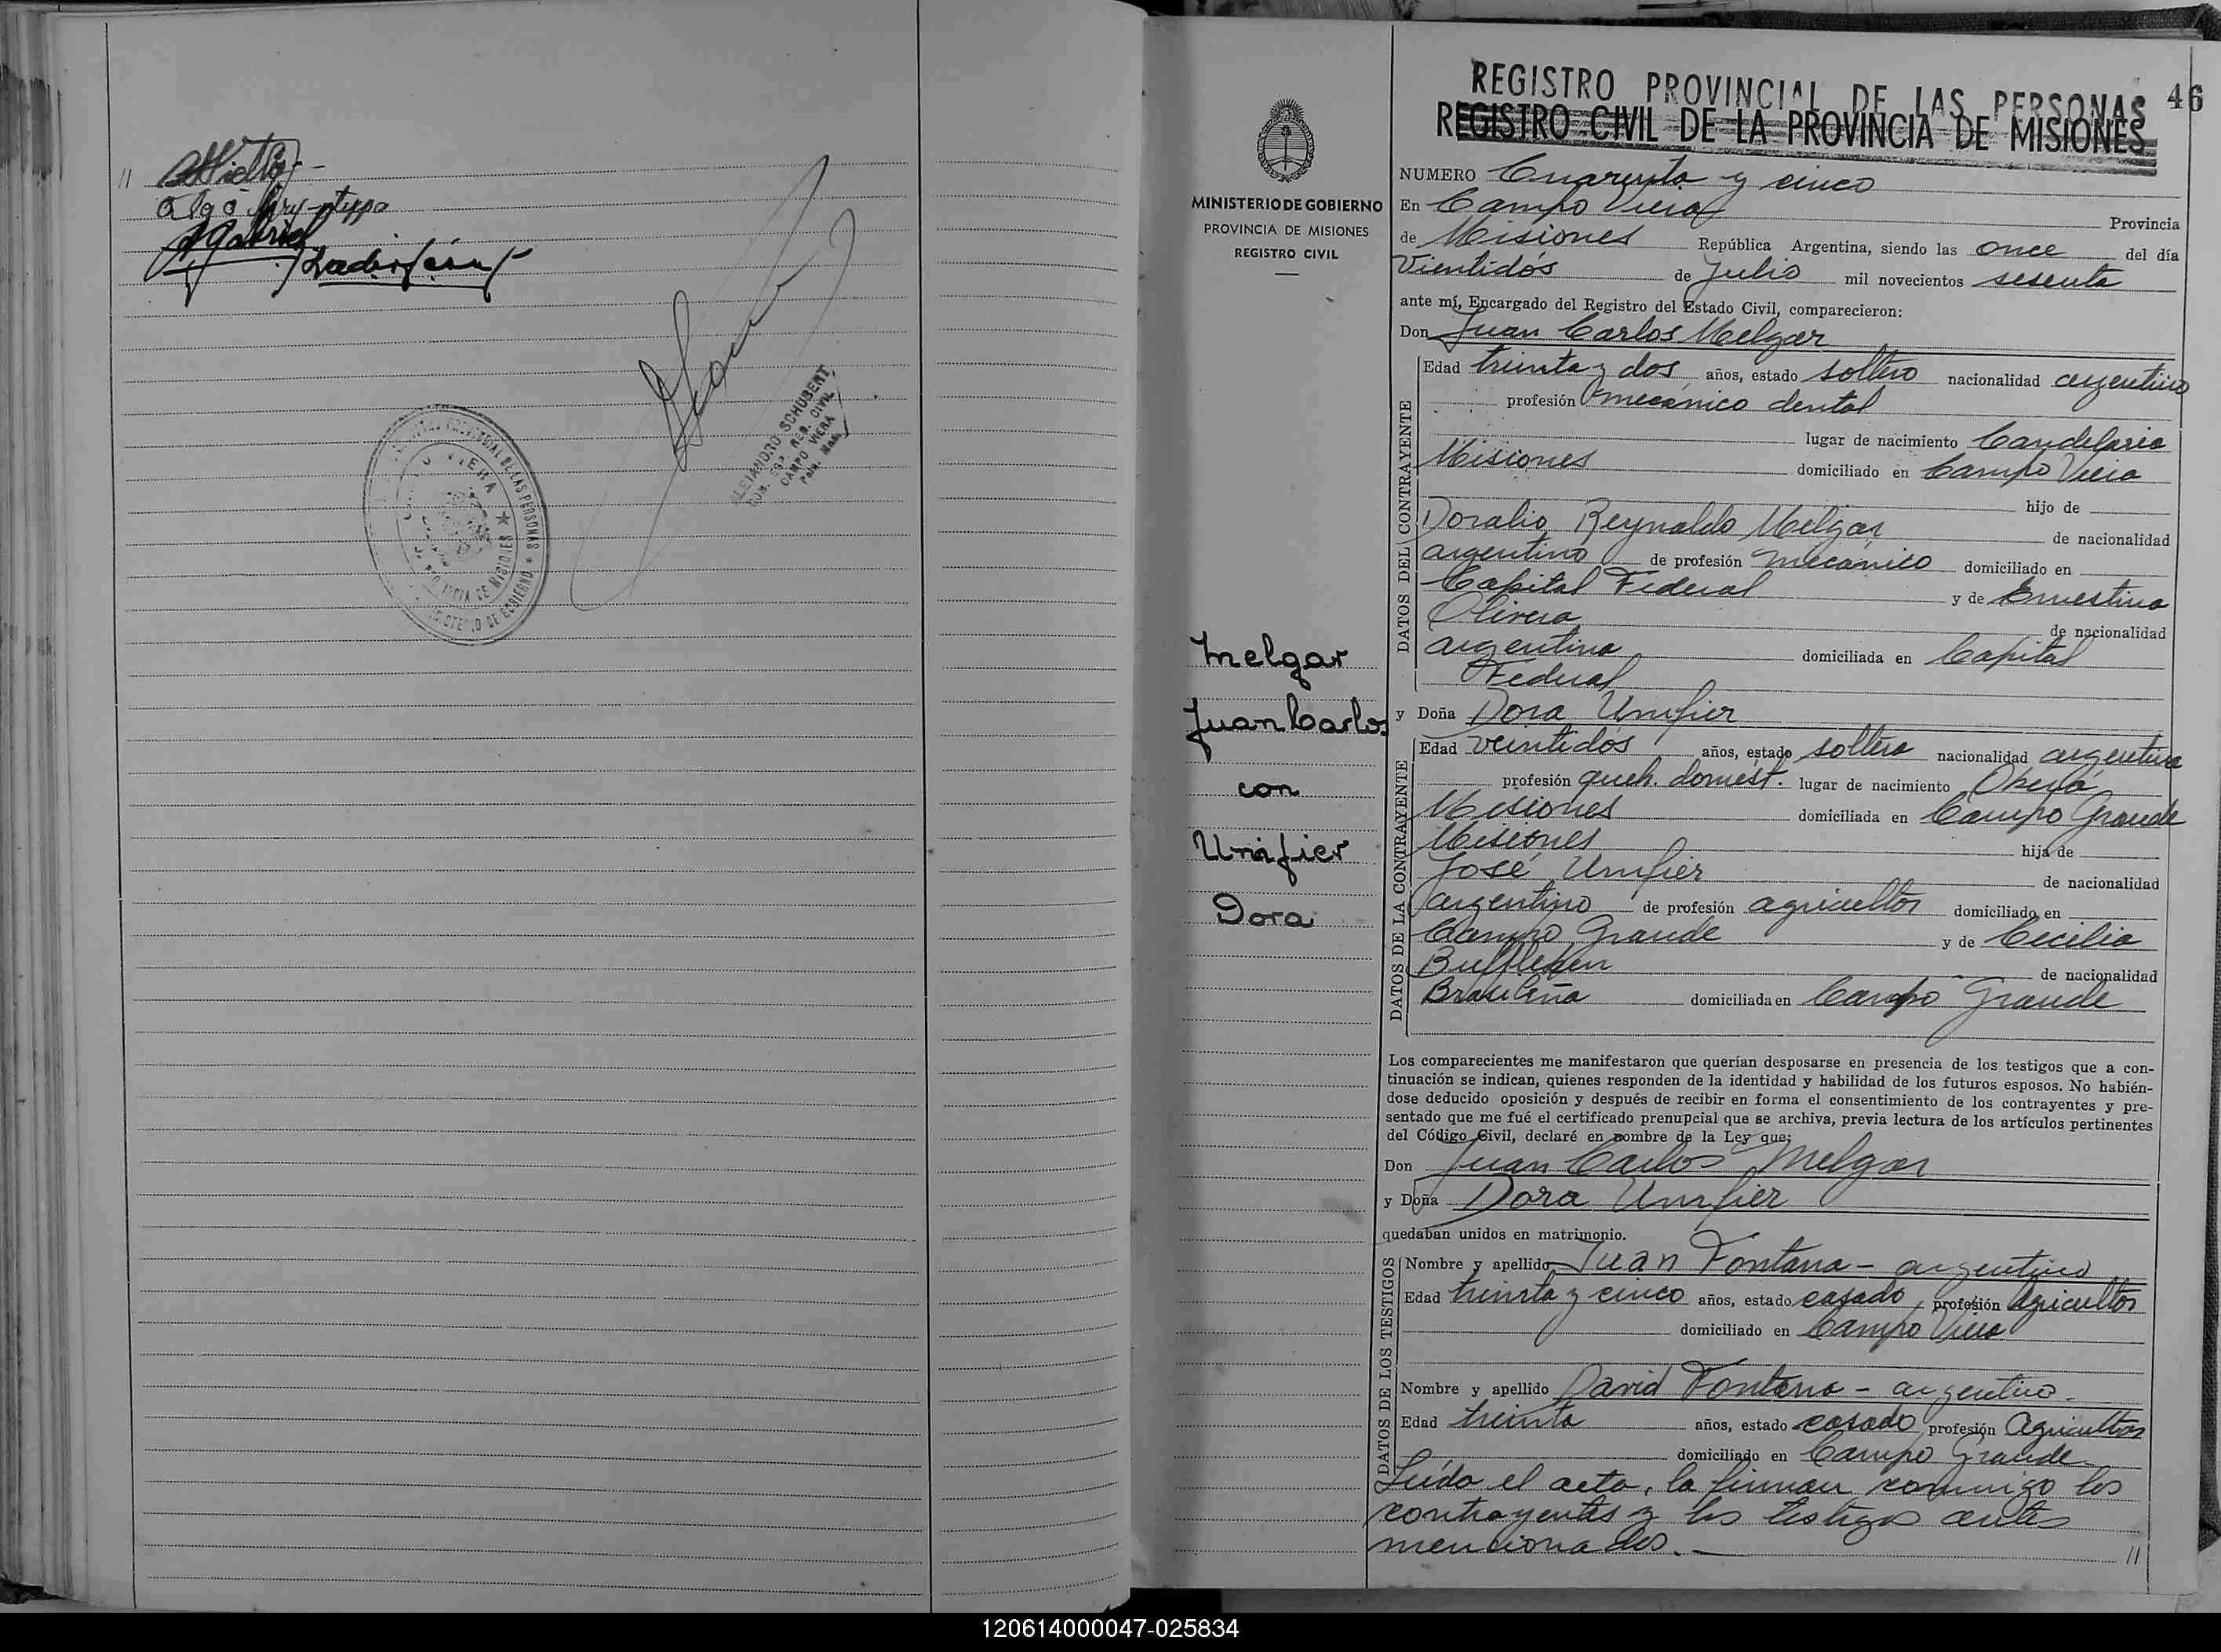 REGISTRO PROVINCIAL DE LAS PERSONAS 46
REGISTRO CIVIL DE LA PROVINCIA DE MISIONES
MINISTERIO DE GOBIERNO
PROVINCIA DE MISIONES
REGISTRO CIVIL
Melgar
Juan Carlos
con
Unifier
Dora
ALEJANDRO SCHUBERT
REG. CIVIL
CAMPO VIERA
NUMERO Cuarenta y cinco
En Campo Viera Provincia
de Misiones República Argentina, siendo las once del día
Vientidós de Julio mil novecientos sesenta
ante mí, Encargado del Registro del Estado Civil, comparecieron:
Don Juan Carlos Melgar
DATOS DEL CONTRAYENTE
Edad treinta y dos años, estado soltero nacionalidad argentino
profesión mecánico dental
lugar de nacimiento Candelaria
Misiones domiciliado en Campo Viera
hijo de
Doralio Reynaldo Melgar de nacionalidad
argentino de profesión mecánico domiciliado en
Capital Federal y de Ernestina
Olivera de nacionalidad
argentina domiciliada en Capital
Federal
y Doña Dora Unifier
DATOS DE LA CONTRAYENTE
Edad veintidós años, estado soltera nacionalidad argentina
profesión queh. domést. lugar de nacimiento Oberá
Misiones domiciliada en Campo Grande
Misiones hija de
José Unifier de nacionalidad
argentino de profesión agricultor domiciliado en
Campo Grande y de Cecilia
de nacionalidad
Brasileña domiciliada en Campo Grande
Los comparecientes me manifestaron que querían desposarse en presencia de los testigos que a con-
tinuación se indican, quienes responden de la identidad y habilidad de los futuros esposos. No habién-
dose deducido oposición y después de recibir en forma el consentimiento de los contrayentes y pre-
sentado que me fué el certificado prenupcial que se archiva, previa lectura de los artículos pertinentes
del Código Civil, declaré en nombre de la Ley que:
Don Juan Carlos Melgar
y Doña Dora Unifier
quedaban unidos en matrimonio.
DATOS DE LOS TESTIGOS
Nombre y apellido Juan Fontana - argentino
Edad treinta y cinco años, estado casado profesión Agricultor
domiciliado en Campo Viera
Nombre y apellido David Fontana - argentino.
Edad treinta años, estado casado profesión Agricultor
domiciliado en Campo Grande.
Leído el acta, la firman conmigo los
contrayentes y los testigos antes
mencionados. — //
120614000047-025834